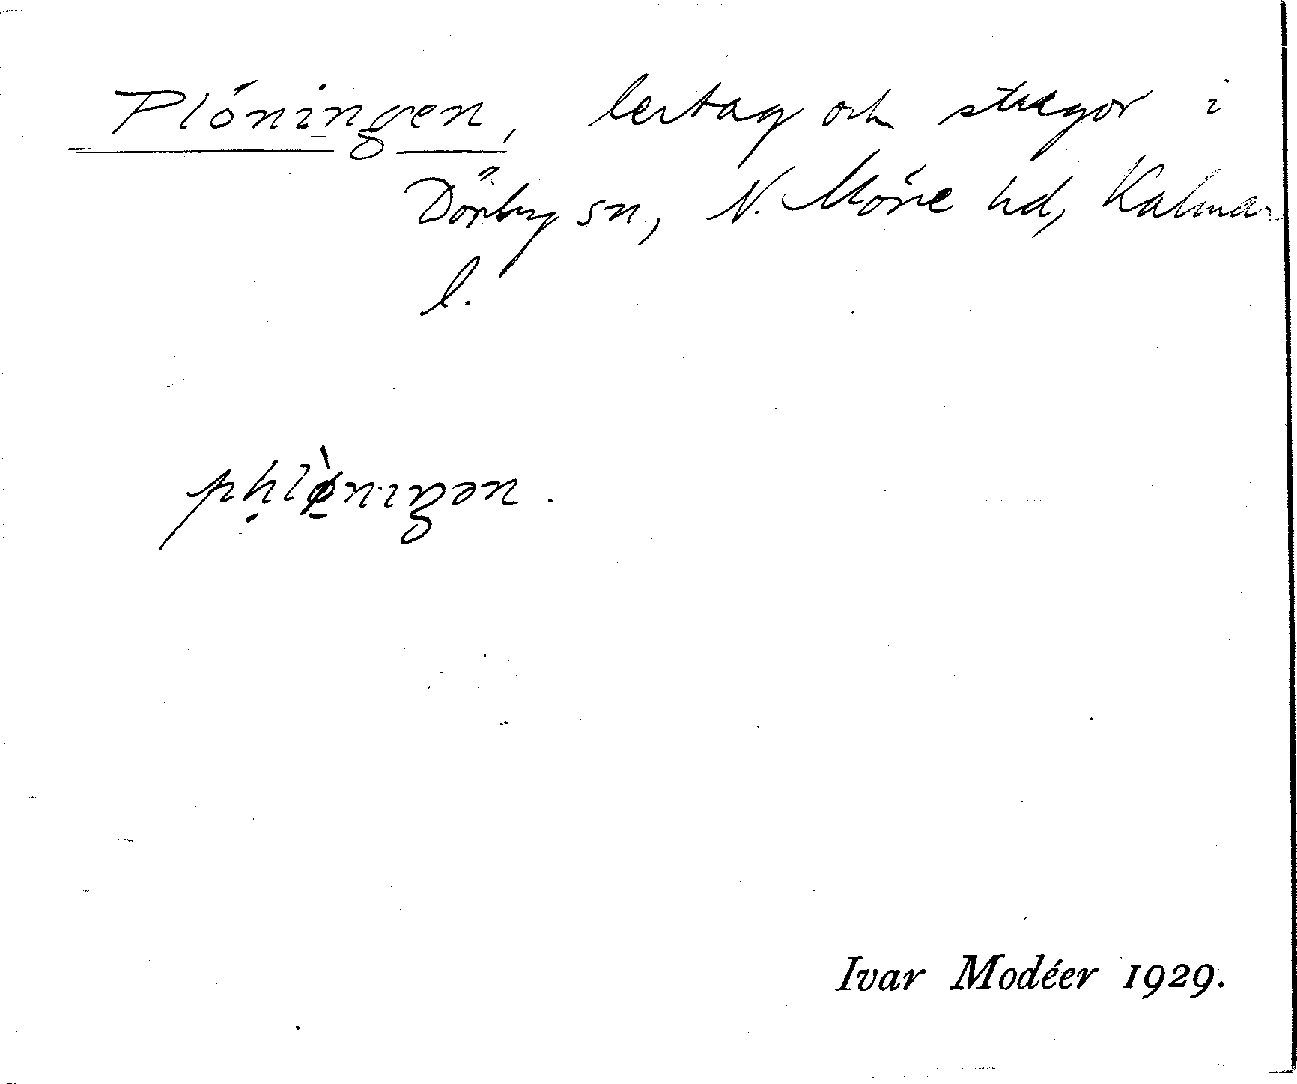 Plöningen, lertag och stugor i
Dörby sn, N. Möre hd, Kalmar
l.
Ivar Modéer 1929.